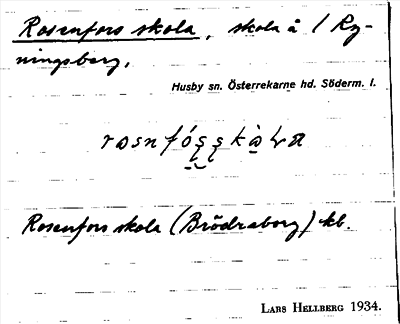 Rosenfors skola, skola å 1 Ry-
ningsberg.
Husby sn. Österrekarne hd. Söderm. l.
Rosenfors skola (Brödraborg) kb.
LARS HELLBERG 1934.